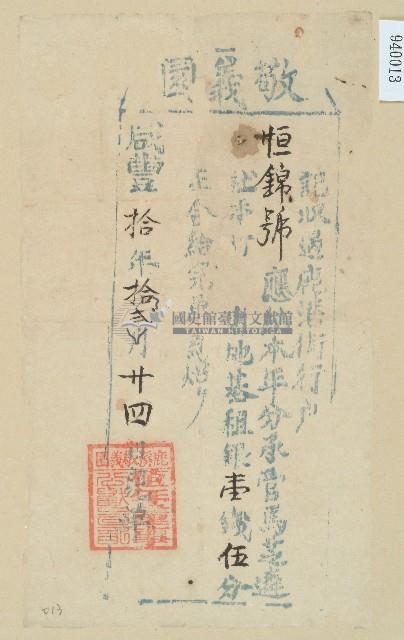 940013
園義敬
記收過鹿港街行戶
恒錦號應本年分承管馬芝遴
社本行地基租銀壹錢伍分
正合給完單爲炤
咸豐拾年拾弍月廿四
國史館臺灣文獻館
TAIWAN HISTORICA
013